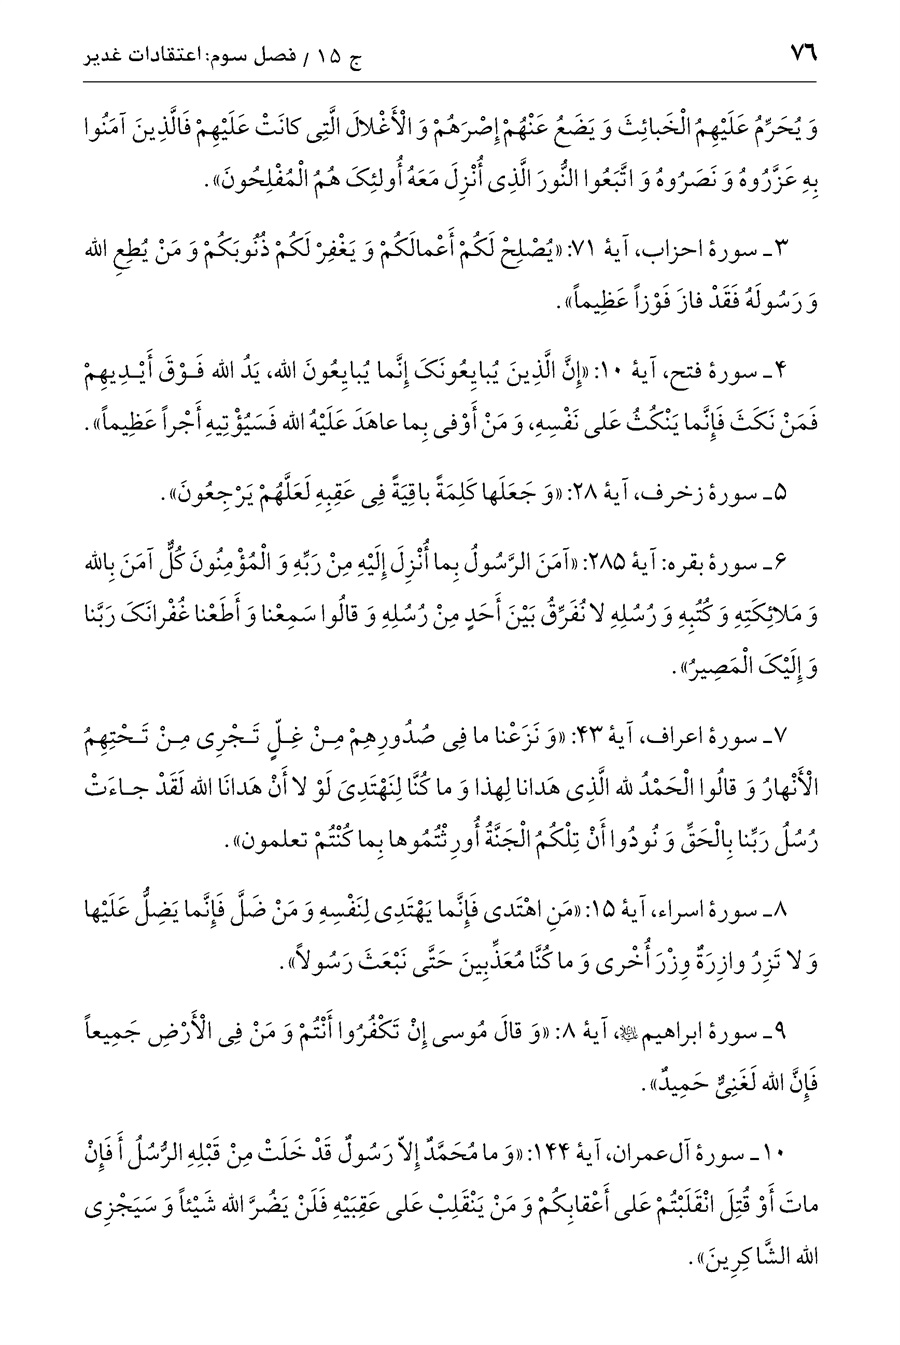 ۷۶
ج ۱۵ / فصل سوم: اعتقادات غدیر
وَ یُحَرِّمُ عَلَیْهِمُ الْخَبائِثَ وَ یَضَعُ عَنْهُمْ إِصْرَهُمْ وَ الْأَغْلالَ الَّتِی کانَتْ عَلَیْهِمْ فَالَّذِینَ آمَنُوا
بِهِ عَزَّرُوهُ وَ نَصَرُوهُ وَ اتَّبَعُوا النُّورَ الَّذِی أُنْزِلَ مَعَهُ أُولئِکَ هُمُ الْمُفْلِحُونَ».
۳ـ سورهٔ احزاب، آیهٔ ۷۱: «یُصْلِحْ لَکُمْ أَعْمالَکُمْ وَ یَغْفِرْ لَکُمْ ذُنُوبَکُمْ وَ مَنْ یُطِعِ الله
وَ رَسُولَهُ فَقَدْ فازَ فَوْزاً عَظِیماً».
۴ـ سورهٔ فتح، آیهٔ ۱۰: «إِنَّ الَّذِینَ یُبایِعُونَکَ إِنَّما یُبایِعُونَ الله، یَدُ الله فَـوْقَ أَیْـدِیهِمْ
فَمَنْ نَکَثَ فَإِنَّما یَنْکُثُ عَلی نَفْسِهِ، وَ مَنْ أَوْفی بِما عاهَدَ عَلَیْهُ الله فَسَیُؤْتِیهِ أَجْراً عَظِیماً».
۵ـ سورهٔ زخرف، آیهٔ ۲۸: «وَ جَعَلَها کَلِمَةً باقِیَةً فِی عَقِبِهِ لَعَلَّهُمْ یَرْجِعُونَ».
۶ـ سورهٔ بقره: آیهٔ ۲۸۵: «آمَنَ الرَّسُولُ بِما أُنْزِلَ إِلَیْهِ مِنْ رَبِّهِ وَ الْمُؤْمِنُونَ کُلٌّ آمَنَ بِالله
وَ مَلائِکَتِهِ وَ کُتُبِهِ وَ رُسُلِهِ لا نُفَرِّقُ بَیْنَ أَحَدٍ مِنْ رُسُلِهِ وَ قالُوا سَمِعْنا وَ أَطَعْنا غُفْرانَکَ رَبَّنا
وَ إِلَیْکَ الْمَصِیرُ».
۷ـ سورهٔ اعراف، آیهٔ ۴۳: «وَ نَزَعْنا ما فِی صُدُورِهِمْ مِـنْ غِـلّ‏ٍ تَـجْرِی مِـنْ تَـحْتِهِمُ
الْأَنْهارُ وَ قالُوا الْحَمْدُ لله الَّذِی هَدانا لِهذا وَ ما کُنَّا لِنَهْتَدِیَ لَوْ لا أَنْ هَدانَا الله لَقَدْ جـاءَتْ
رُسُلُ رَبِّنا بِالْحَقِّ وَ نُودُوا أَنْ تِلْکُمُ الْجَنَّةُ أُورِثْتُمُوها بِما کُنْتُمْ تعلمون».
۸ـ سورهٔ اسراء، آیهٔ ۱۵: «مَنِ اهْتَدی فَإِنَّما یَهْتَدِی لِنَفْسِهِ وَ مَنْ ضَلَّ فَإِنَّما یَضِلُّ عَلَیْها
وَ لا تَزِرُ وازِرَةٌ وِزْرَ أُخْری وَ ما کُنَّا مُعَذِّبِینَ حَتَّی نَبْعَثَ رَسُولاً».
۹ـ سورهٔ ابراهیم، آیهٔ ۸: «وَ قالَ مُوسی إِنْ تَکْفُرُوا أَنْتُمْ وَ مَنْ فِی الْأَرْضِ جَمِیعاً
فَإِنَّ الله لَغَنِیٌّ حَمِیدٌ».
۱۰ـ سورهٔ آل‌عمران، آیهٔ ۱۴۴: «وَ ما مُحَمَّدٌ إِلاّ رَسُولٌ قَدْ خَلَتْ مِنْ قَبْلِهِ الرُّسُلُ أَ فَإِنْ
ماتَ أَوْ قُتِلَ انْقَلَبْتُمْ عَلی أَعْقابِکُمْ وَ مَنْ یَنْقَلِبْ عَلی عَقِبَیْهِ فَلَنْ یَضُرَّ الله شَیْئاً وَ سَیَجْزِی
الله الشَّاکِرِینَ».